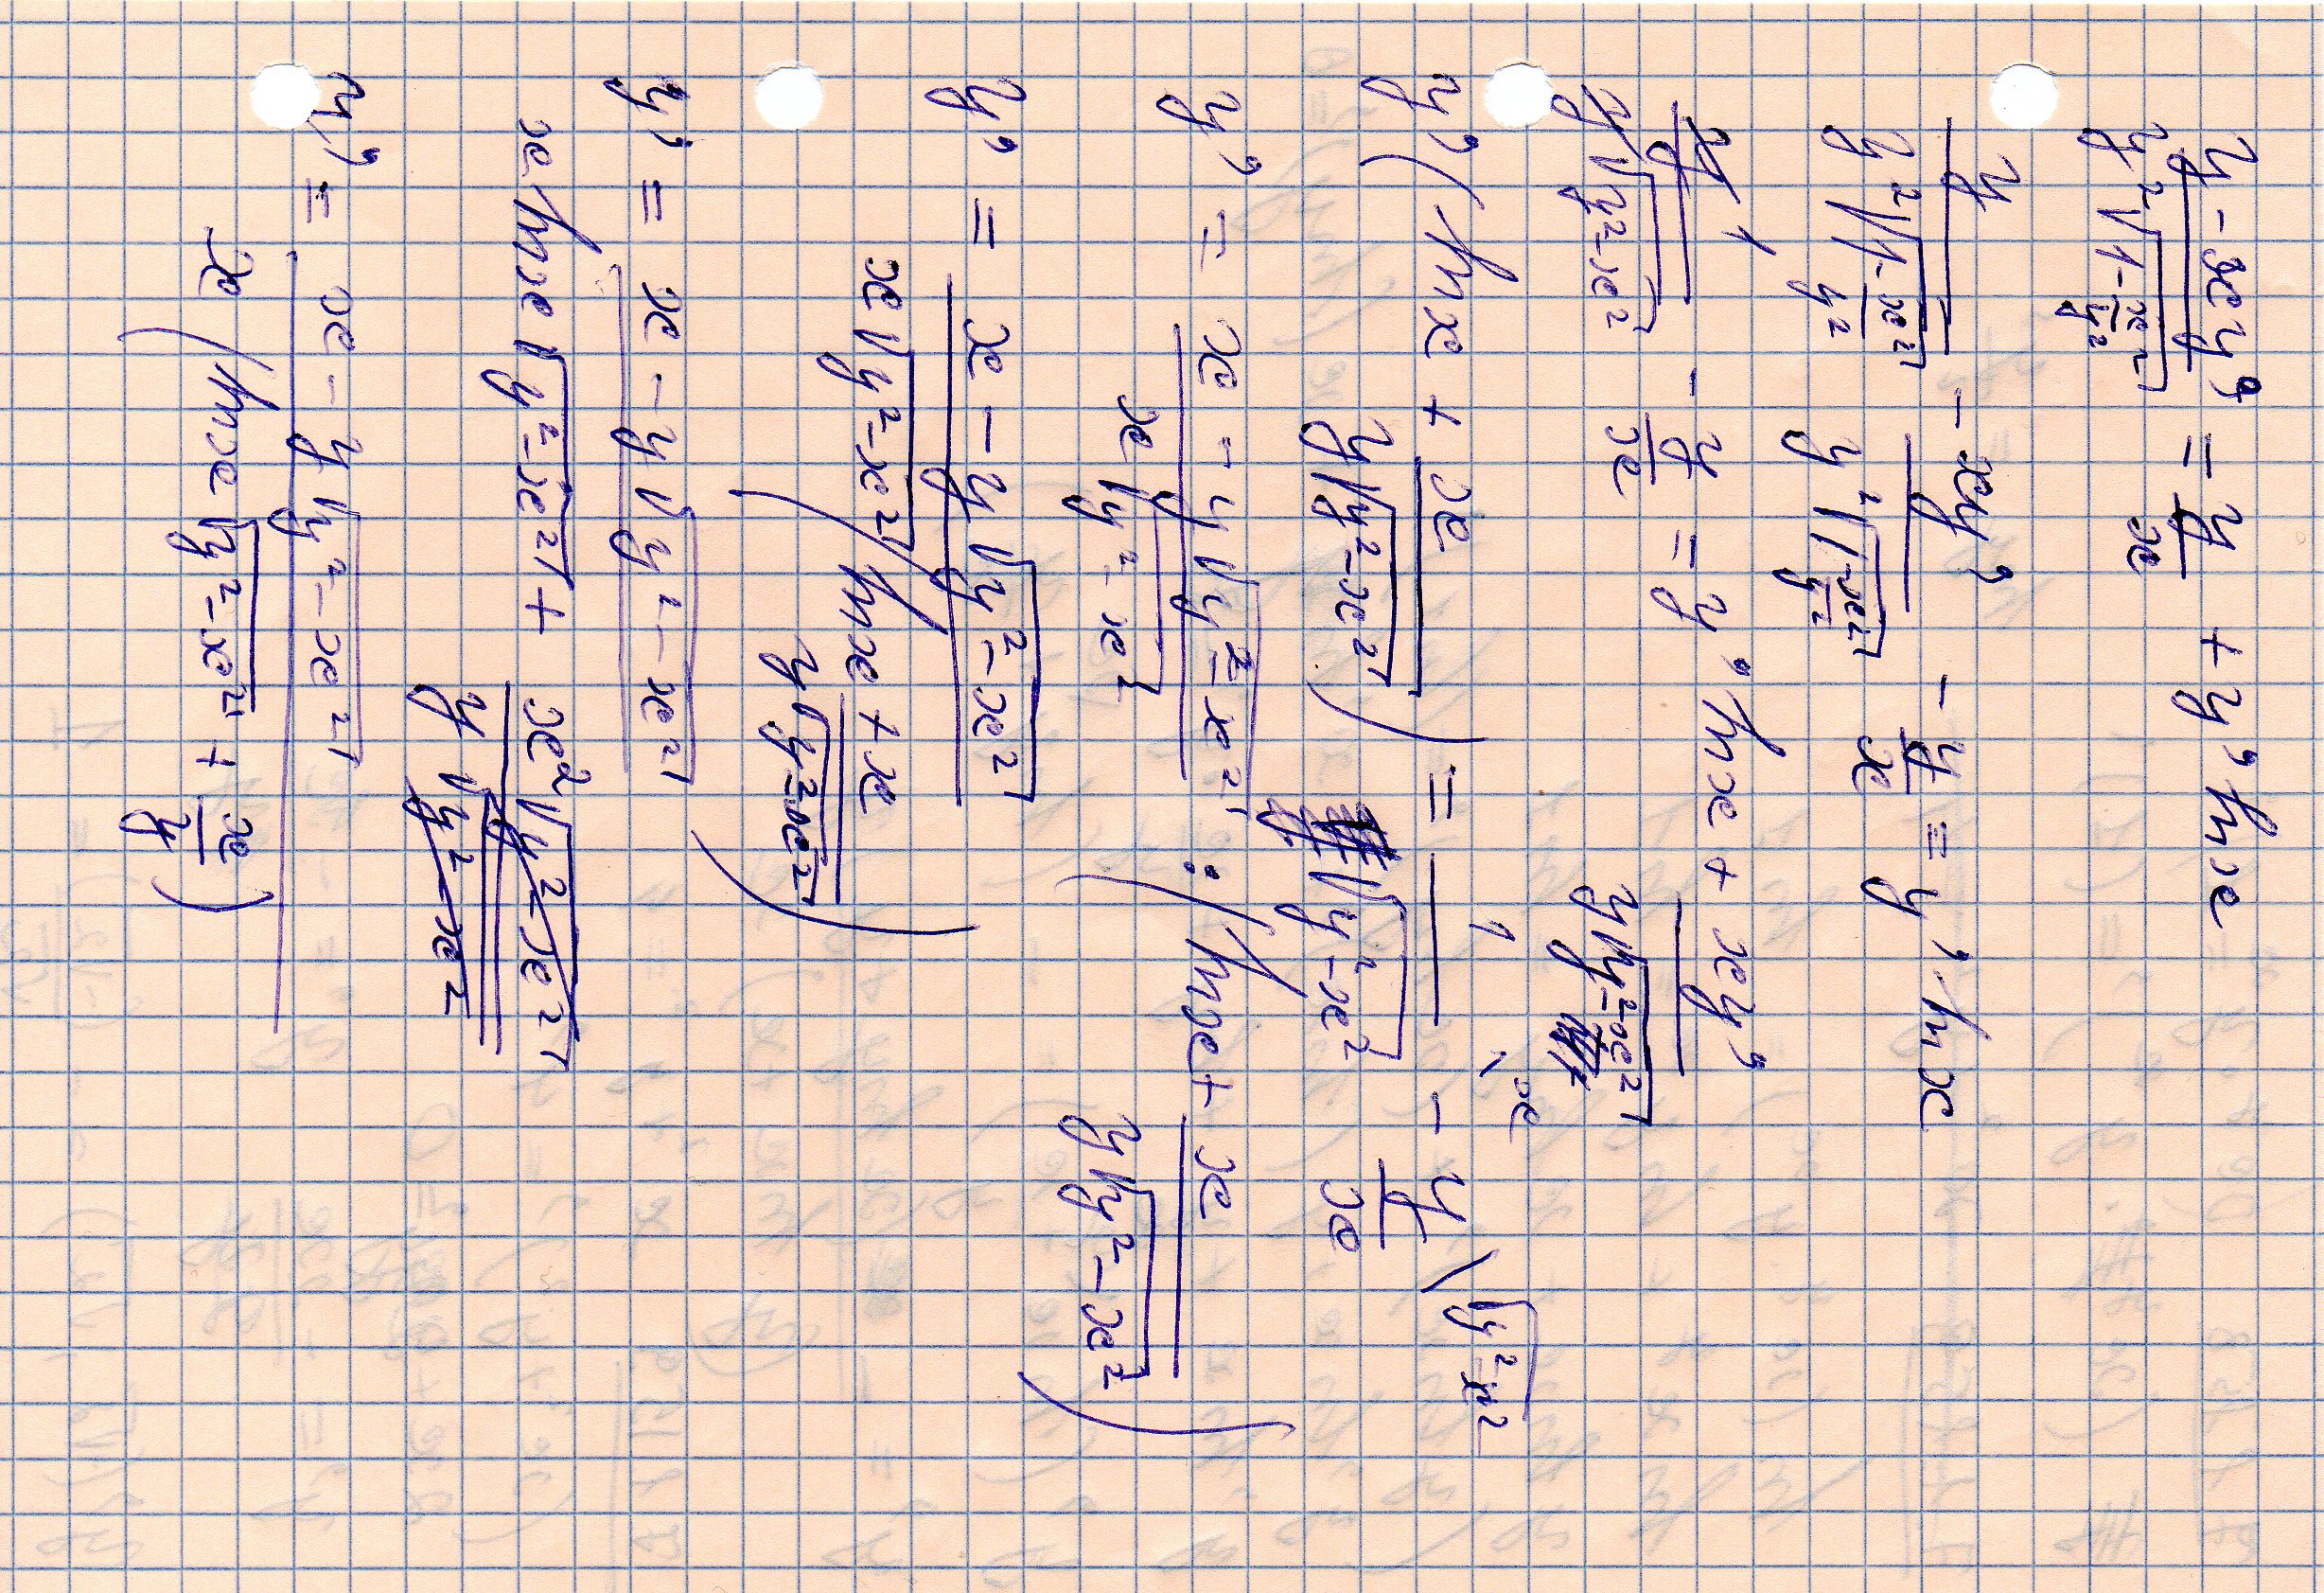 (y - xy') / (y²√(1 - x²/y²)) = y/x + y' ln x
y / (y²√(1 - x²/y²)) - xy' / (y²√(1 - x²/y²)) - y/x = y' ln x
y 1 / (y√(y² - x²)) - y/x = y' ln x + xy' / (y√(y² - x²))
y' (ln x + x / (y√(y² - x²))) = 1 \x / √(y² - x²) - y/x \√(y² - x²)
y' = (x - y√(y² - x²)) / (x√(y² - x²)) : (ln x + x / (y√(y² - x²)))
y' = (x - y√(y² - x²)) / (x√(y² - x²) (ln x + x / (y√(y² - x²))))
y' = (x - y√(y² - x²)) / (x ln x √(y² - x²) + x²√(y² - x²) / (y√(y² - x²)))
y' = (x - y√(y² - x²)) / (x (ln x √(y² - x²) + x/y))